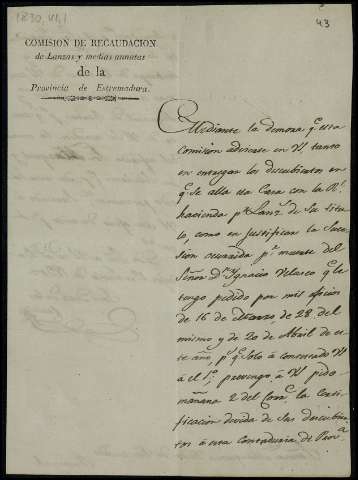 1830, VI, 1
43
COMISION DE RECAUDACION
de Lanzas y medias annatas
de la
Provincia de Estremadura.
Mediante la demora q.e esta
comision advierte en V. tanto
en entregar los descubiertos en
q.e se alla esa Casa con la R.l
hacienda p.r Lanz.s de su titu-
lo, como en justificar la suce-
sion ocurrida p.r muerte del
Señor D.n Ygnacio Velasco q.e le
tengo pedido por mis oficios
de 16 de Marzo, de 28 del
mismo y de 20 de Abril de es-
te año, p.s q.e solo á contestado V.
á el 1.º; prevengo á V. p.a
mañana 2 del Corr.e la certi-
ficacion de sus descubier-
tos á esta Contaduria de Prov.a